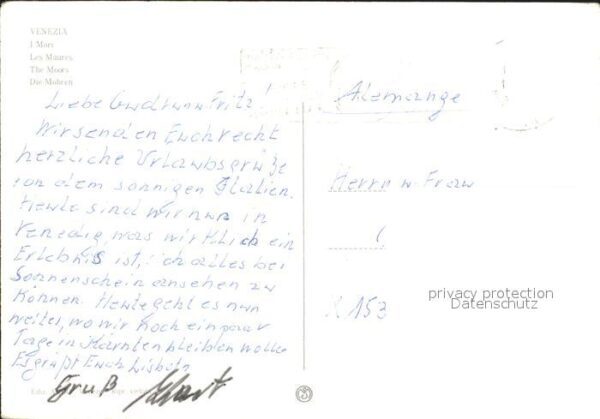 VENEZIA
I Mori
Les Maures
The Moors
Die Mohren
Liebe Gudrun u Fritz!
Wir senden Euch recht
herzliche Urlaubsgrüße
von dem sonnigen Italien.
Heute sind wir nun in
Venedig, was wirklich ein
Erlebnis ist, sich alles bei
Sonnenschein ansehen zu
können. Heute geht es nun
weiter, wo wir noch ein paar
Tage in Kärnten bleiben wolle
Es grüßt Euch
Gruß
Alemange
Herrn u Frau
R 153
privacy protection
Datenschutz